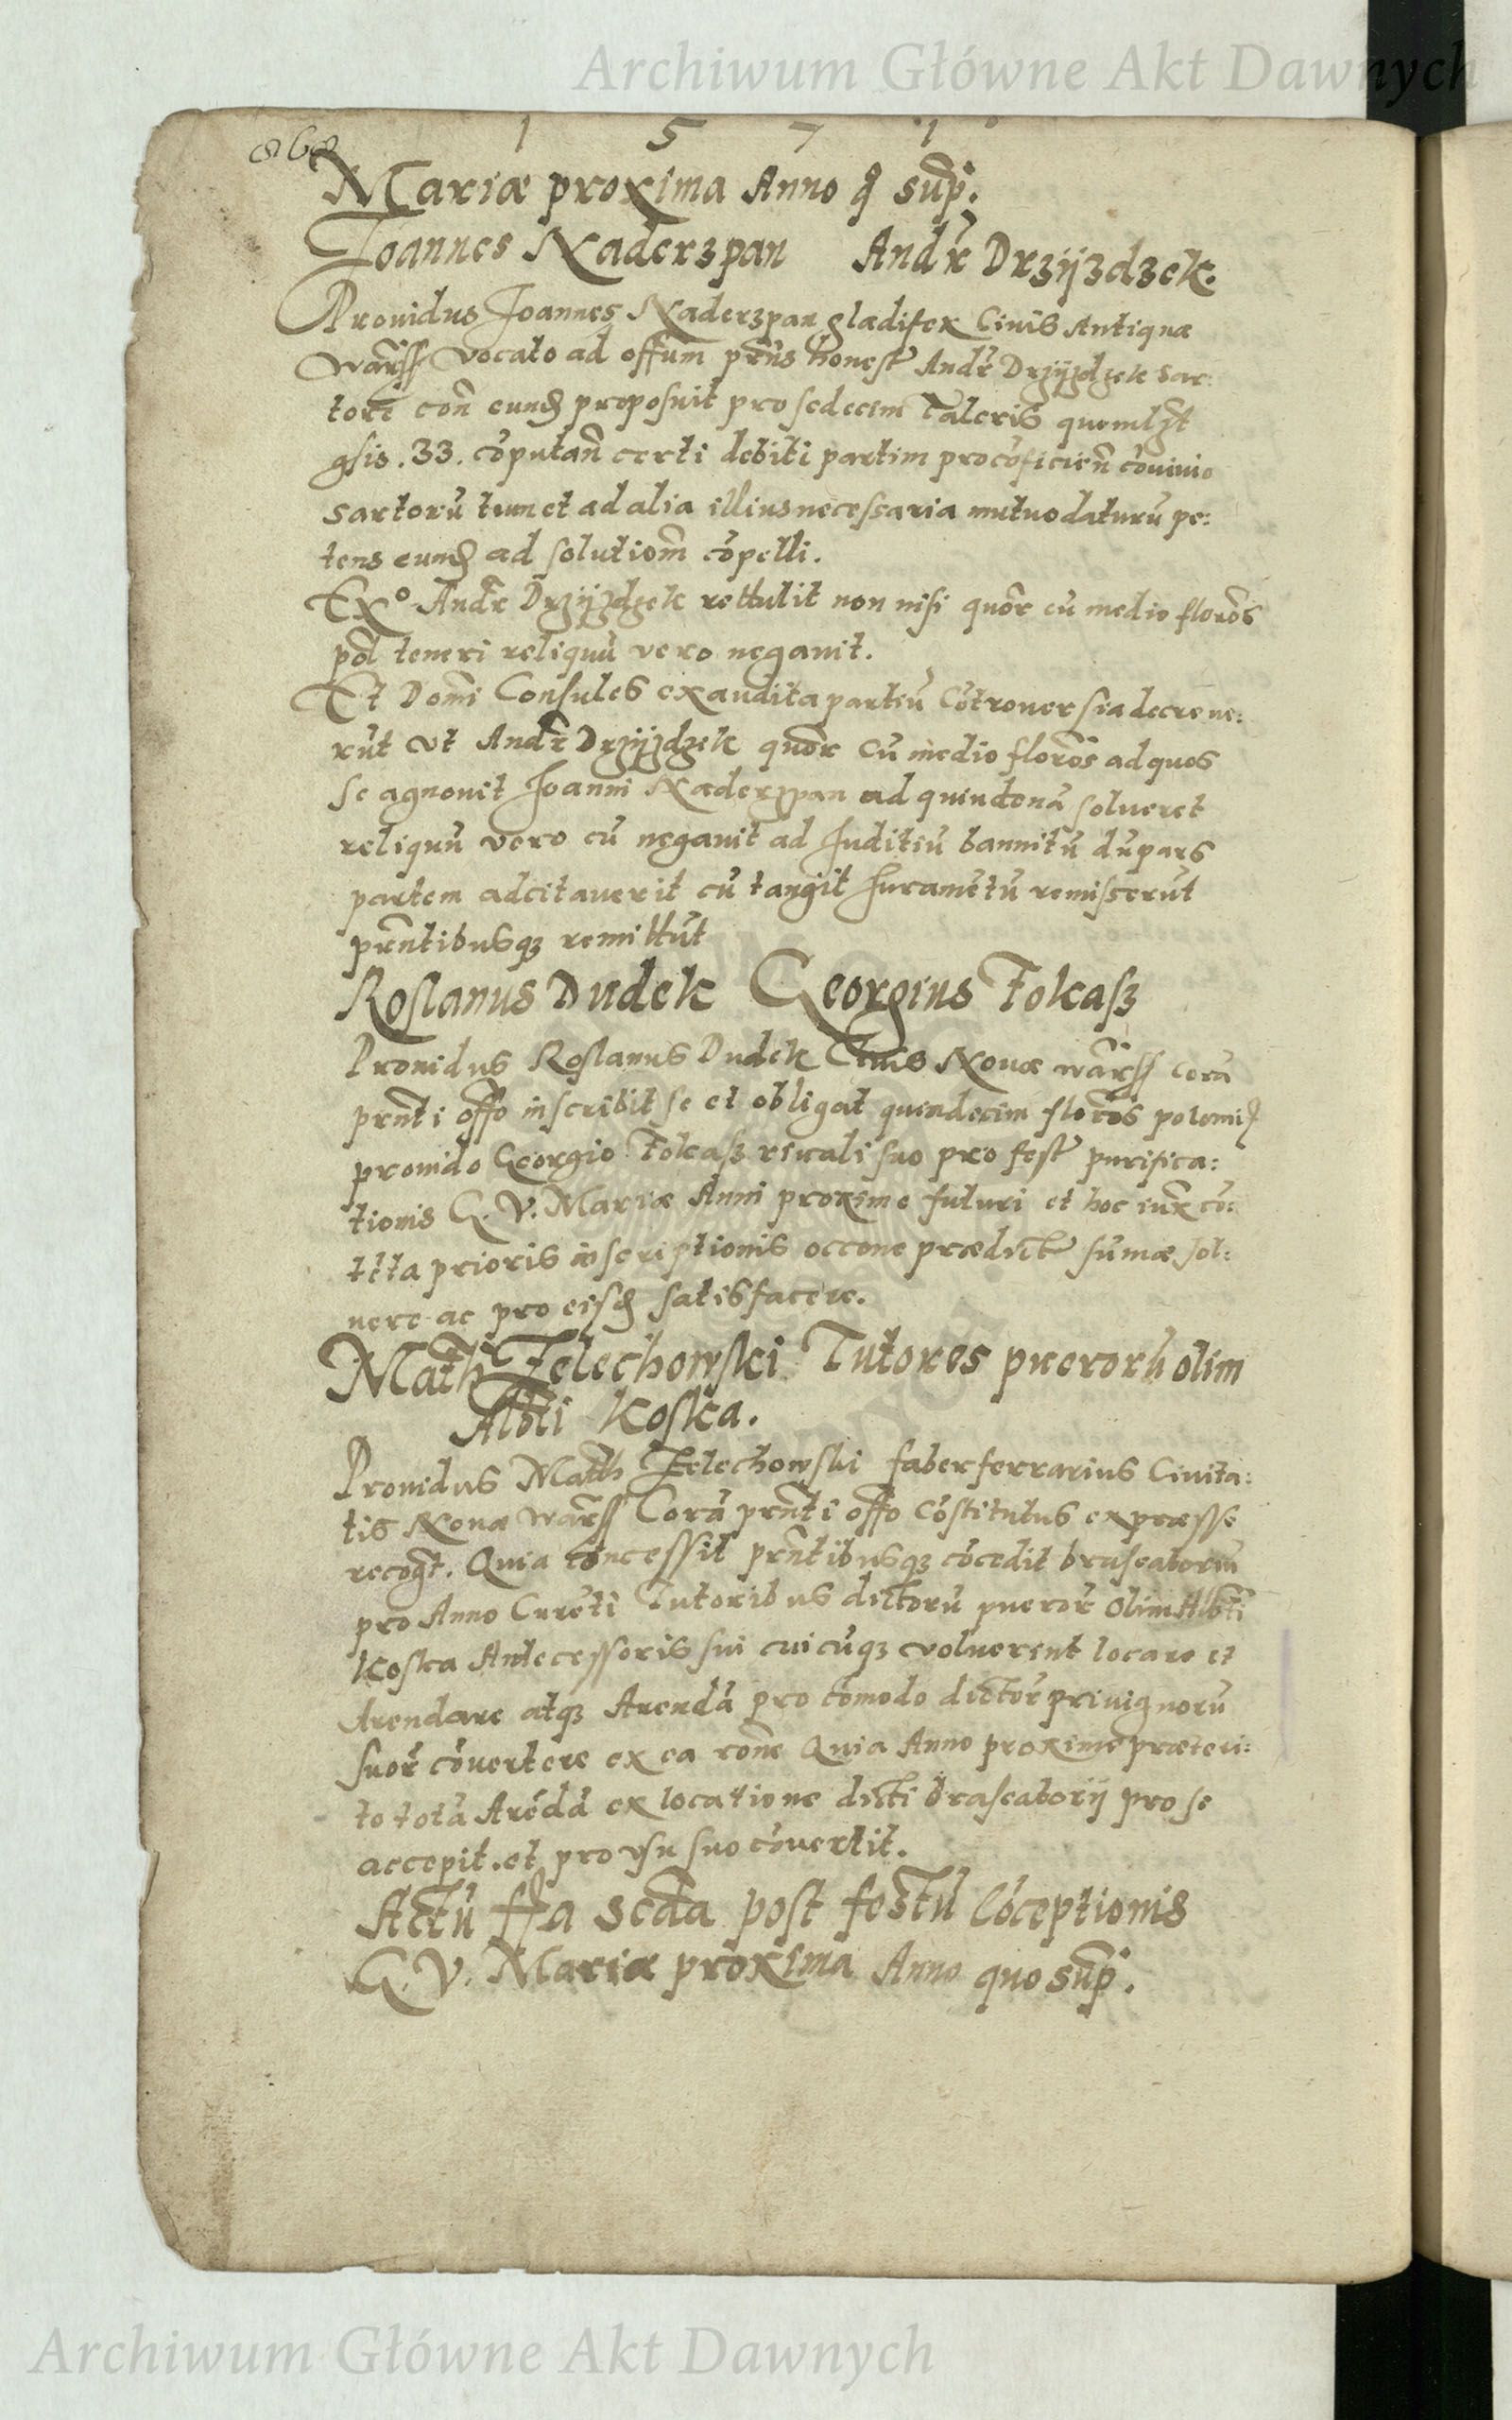 Archiwum Główne Akt Dawnych
868
1 5 7 1
Mariæ proxima Anno q sup.
Joannes Naderzpan Andr Drzyzdzek.
Prouidus Joannes Naderzpan gladifex Ciuis Antiquæ
Warss vocato ad offum prns honest Andr Drzyzdzek sar:
tore con eund proposuit pro sedecim Taleris quemlzt
gsis. 33. cōputan certi debiti partim pro cōficien cōuiuio
sartorū tum et ad alia illius necessaria mutuo daturū pe:
tens eund ad solutiom cōpelli.
Exo Andr Drzyzdzek rettulit non nisi quor cū medio florōs
pol teneri reliquū vero negauit.
Et Domi Consules exaudita partiū Cōtrouersia decreue:
rūt vt Andr Drzyzdzek quor cū medio florōs ad quos
se agnouit Joanni Naderzpan ad quindenā solueret
reliquū vero cū negauit ad Juditiū bannitū dū pars
partem adcitauerit cū tangit Juramētū remisserūt
prntibusqz remittūt
Roslanus Dudek Georgius Tokasz
Prouidus Roslanus Dudek Ciuis Nouæ warss Corā
prnti offo inscribit se et obligat quindecim florōs polonic
prouido Georgio Tokasz riuali suo pro fest purifica:
tionis G. V. Mariæ Anni proxime futuri et hoc iux cō:
tēta prioris inscriptionis occone prædict sumæ sol:
uere ac pro eisd satisfacere.
Math Zelechowski Tutores puerorū olim
Albti Koska.
Prouidus Math Zelechowski faber ferrarius Ciuita:
tis Nouæ Warss Corā prnti offo Cōstitutus expræsse
recogt. Quia concessit prntibusqz cōcedit braseatorium
pro Anno Curēti Tutoribus dictorū pueror olim Albti
Koska Antecessoris sui cuicūqz voluerint locare et
Arendare atqz Arendā pro cōmodo dictor priuignorū
suor cōuertere ex ea rone Quia Anno proxime præteri:
to totā Arēdā ex locatione dicti braseatorij pro se
accepit. et pro vsu suo cōuertit.
Actū ffa scda post festū Cōceptionis
G. V. Mariæ proxima Anno quo sup.
Archiwum Główne Akt Dawnych